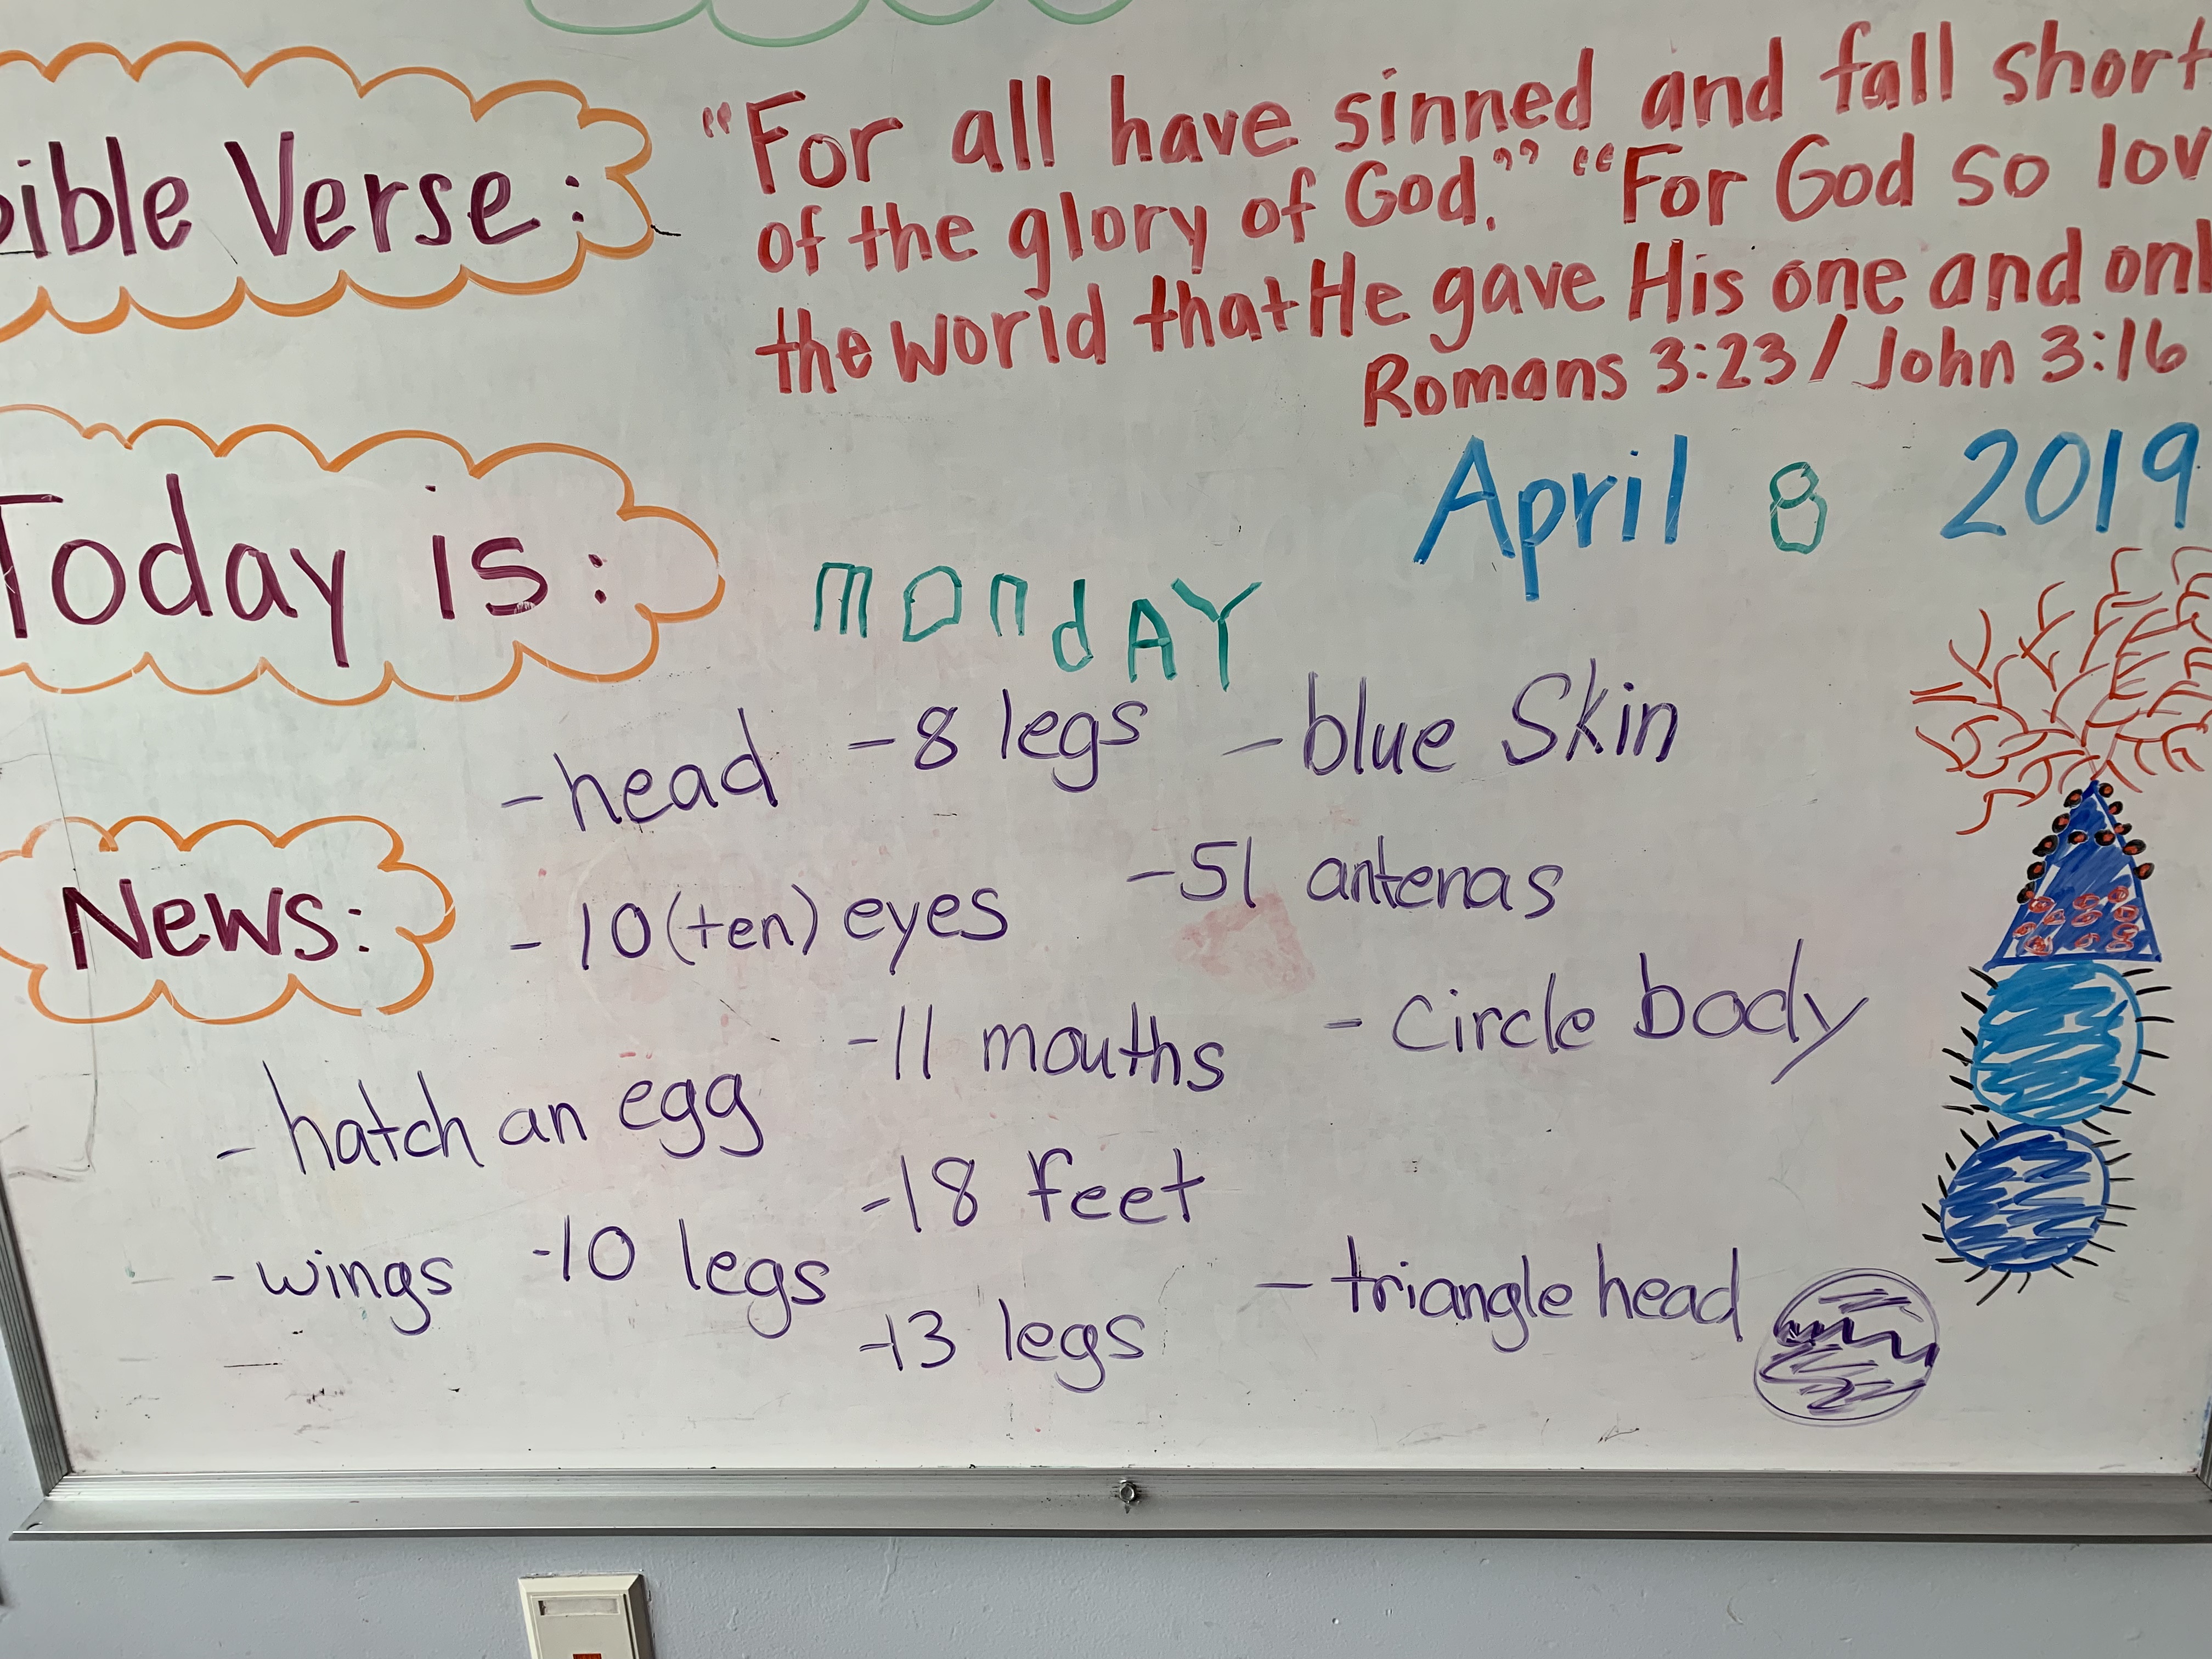 Bible Verse:
"For all have sinned and fall short
of the glory of God." "For God so lov
the world that He gave His one and onl
Romans 3:23 / John 3:16
Today is:
monDAY
April 8 2019
News:
- head
- 8 legs
- blue Skin
- 10 (ten) eyes
- 51 antenas
- 11 mouths
- circle body
- hatch an egg
- 18 feet
- wings
- 10 legs
- 13 legs
- triangle head